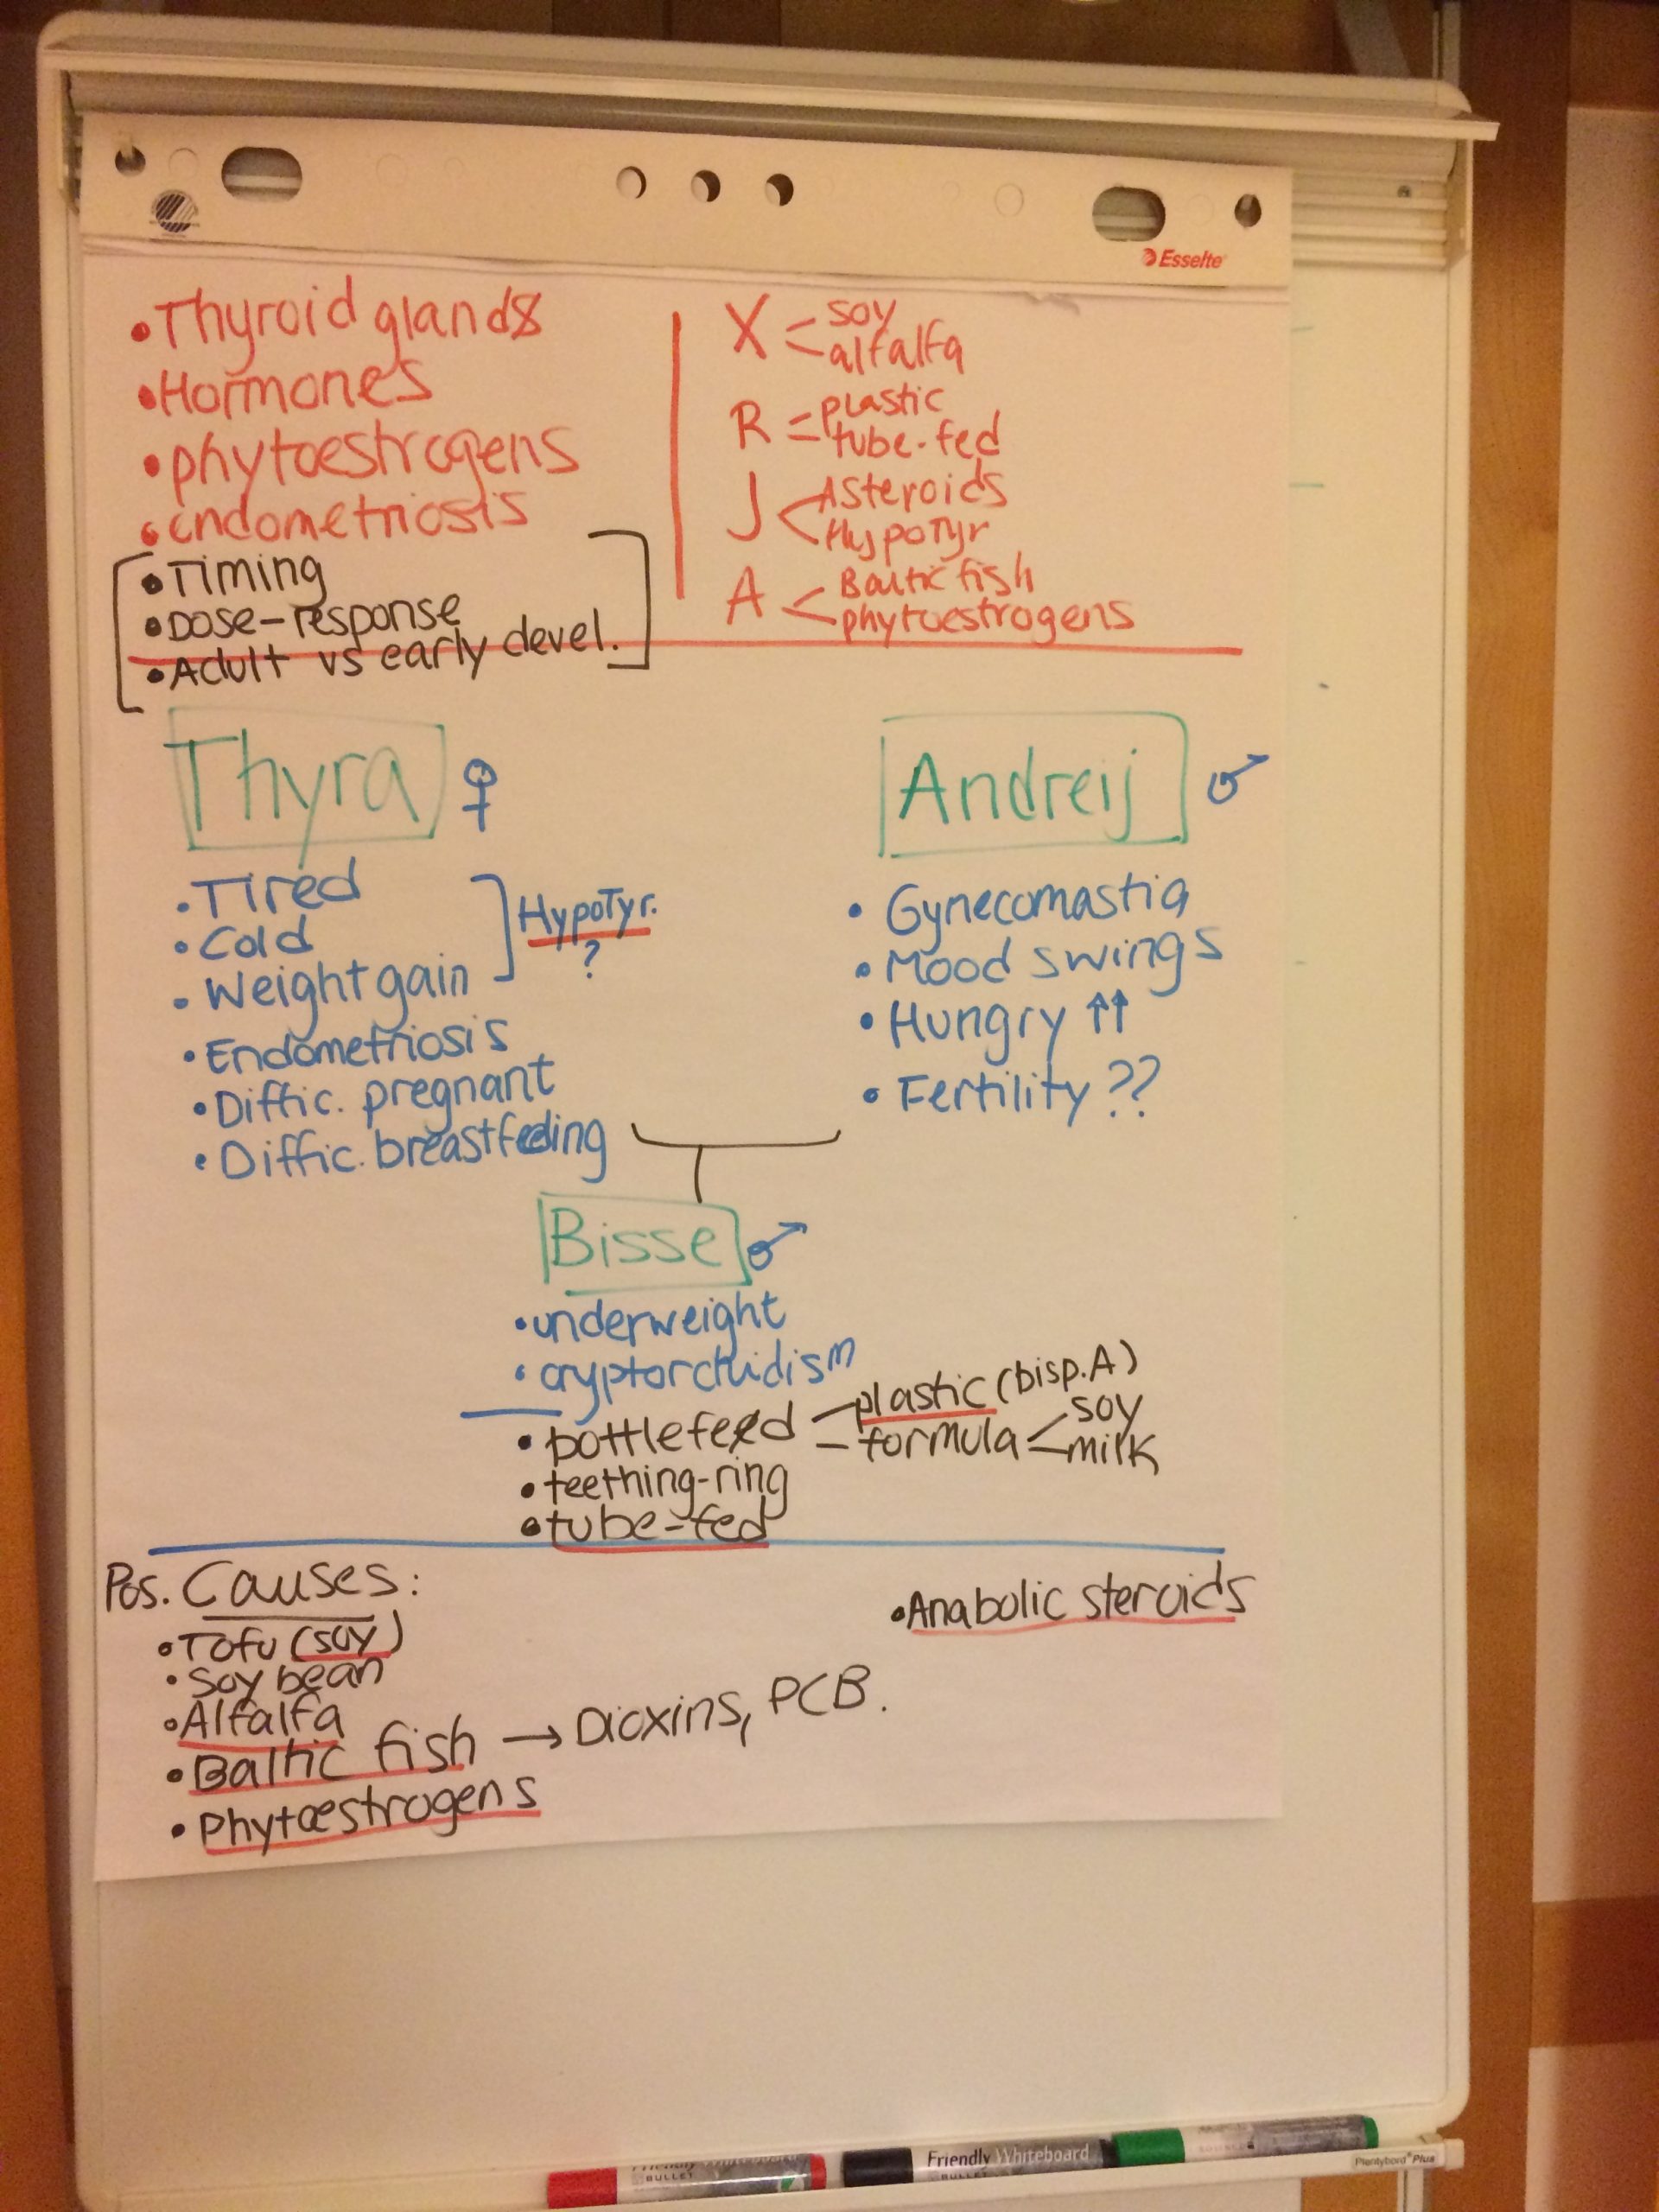 Esselte
•Thyroid glands
•Hormones
•phytoestrogens
•endometriosis
•Timing
•Dose-response
•Adult vs early devel.
X < soy
alfalfa
R = plastic
tube-fed
J < Asteroids
HypoTyr
A < Baltic fish
phytoestrogens
Thyra ♀
•Tired
•Cold
•Weight gain
HypoTyr.
?
•Endometriosis
•Diffic. pregnant
•Diffic. breastfeeding
Andreij ♂
•Gynecomastia
•Mood swings
•Hungry ↑↑
•Fertility ??
Bisse ♂
•underweight
•cryptorchidism
•bottlefed
plastic (bisp.A)
formula < soy
milk
•teething-ring
•tube-fed
Pos. Causes:
•Tofu (soy)
•Soy bean
•Alfalfa
•Baltic fish → Dioxins, PCB.
•Phytoestrogens
•Anabolic steroids
Friendly Whiteboard
BULLET
Friendly Whiteboard
BULLET
Plentybord Plus